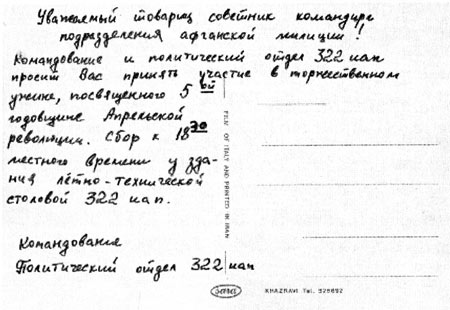 Уважаемый товарищ советник командира
подразделения афганской милиции!
Командование и политический отдел 322 иап
просит Вас принять участие в торжественном
ужине, посвященного 5ой
годовщине Апрельской
революции. Сбор к 18 30
местного времени у зда-
ния лётно-технической
столовой 322 иап.
Командование
Политический отдел 322 иап
OF ITALY AND PRINTED IN IRAN
sara
KHAZRAVI Tel. 325692